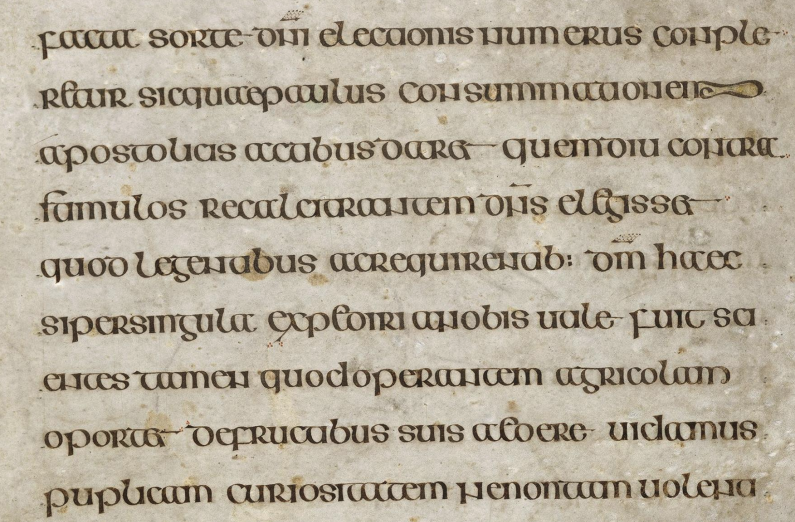 facta sorte dn̄i electionis numerus conple
retur sicquae paulus consummationem
apostolicis actibus daret quem diu contra
famulos recalcitrantem dn̄s elegisset
quod legentibus ac requirentib: dm̄ haec
si per singula expediri a nobis utile fuit sci
entes tamen quod operantem agricolam
oportet de fructibus suis aedere uidamus
puplicam curiositatem ne non tam uolenti